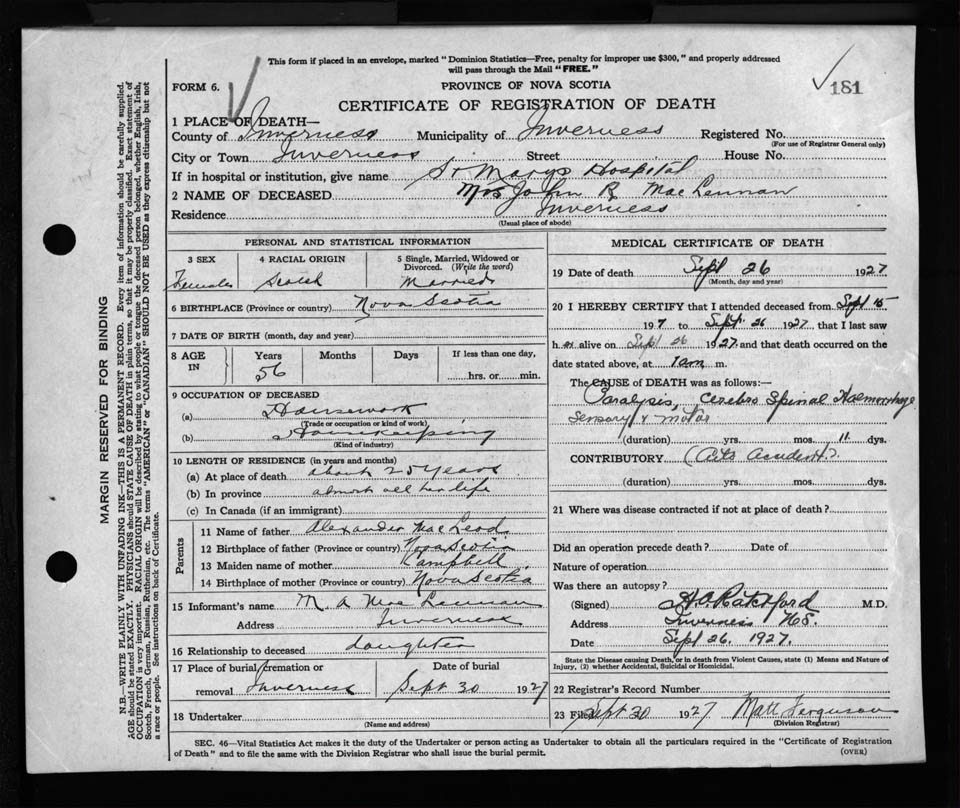 This form if placed in an envelope, marked "Dominion Statistics—Free, penalty for improper use $300," and properly addressed
will pass through the Mail "FREE."
FORM 6.
PROVINCE OF NOVA SCOTIA
181
CERTIFICATE OF REGISTRATION OF DEATH
1 PLACE OF DEATH—
County of Inverness Municipality of Inverness Registered No.
(For use of Registrar General only)
City or Town Inverness Street House No.
If in hospital or institution, give name St Marys Hospital
2 NAME OF DECEASED Mrs John R. MacLennan
Residence Inverness
(Usual place of abode)
PERSONAL AND STATISTICAL INFORMATION
3 SEX 4 RACIAL ORIGIN 5 Single, Married, Widowed or Divorced. (Write the word)
Female Scotch Married
6 BIRTHPLACE (Province or country) Nova Scotia
7 DATE OF BIRTH (month, day and year)
8 AGE IN Years Months Days If less than one day,
56 hrs. or min.
9 OCCUPATION OF DECEASED
(a) Housework
(Trade or occupation or kind of work)
(b) Housekeeping
(Kind of industry)
10 LENGTH OF RESIDENCE (in years and months)
(a) At place of death about 25 years
(b) In province almost all her life
(c) In Canada (if an immigrant)
Parents
11 Name of father Alexander MacLeod
12 Birthplace of father (Province or country) Nova Scotia
13 Maiden name of mother Campbell
14 Birthplace of mother (Province or country) Nova Scotia
15 Informant's name M. A MacLennan
Address Inverness
16 Relationship to deceased daughter
17 Place of burial/cremation or Date of burial
removal Inverness Sept 30 1927
18 Undertaker
(Name and address)
MEDICAL CERTIFICATE OF DEATH
19 Date of death Sept 26 1927
(Month, day and year)
20 I HEREBY CERTIFY that I attended deceased from Sept 15
1927 to Sept 26 1927, that I last saw
h er alive on Sept 26 1927 and that death occurred on the
date stated above, at 1 am m.
The CAUSE of DEATH was as follows:—
Paralysis, Cerebro Spinal Haemorrhage
Sensory & motor
(duration) yrs. mos. 11 dys.
CONTRIBUTORY
(duration) yrs. mos. dys.
21 Where was disease contracted if not at place of death?
Did an operation precede death? Date of
Nature of operation
Was there an autopsy?
(Signed) M.D.
Address Inverness N.S.
Date Sept 26. 1927.
State the Disease causing Death, or in death from Violent Causes, state (1) Means and Nature of
Injury, (2) whether Accidental, Suicidal or Homicidal.
22 Registrar's Record Number
23 Filed Sept 30 1927 Matt Ferguson
(Division Registrar)
SEC. 46—Vital Statistics Act makes it the duty of the Undertaker or person acting as Undertaker to obtain all the particulars required in the "Certificate of Registration
of Death" and to file the same with the Division Registrar who shall issue the burial permit.
(OVER)
MARGIN RESERVED FOR BINDING
N.B.—WRITE PLAINLY WITH UNFADING INK—THIS IS A PERMANENT RECORD. Every item of information should be carefully supplied.
AGE should be stated EXACTLY. PHYSICIANS should STATE CAUSE OF DEATH in plain terms, so that it may be properly classified. Exact statement of
OCCUPATION is very important. RACIAL ORIGIN will be described by stating to what people or tongue the deceased person belonged, whether English, Irish,
Scotch, French, German, Russian, Ruthenian, etc. The terms "AMERICAN" or "CANADIAN" SHOULD NOT BE USED as they express citizenship but not
a race or people. See instructions on back of Certificate.